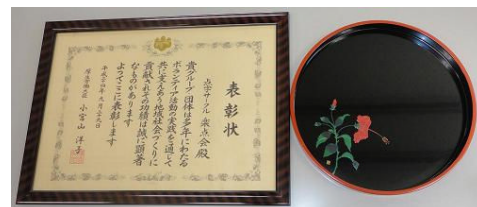 表彰状
点字サークル 泉点会殿
貴グループ団体は多年にわたる
ボランティア活動の実践を通して
共に支えあう地域社会づくりに
貢献されその功績は誠に顕著
なものがあります
よってここに表彰します
平成二十四年九月二十九日
厚生労働大臣 小宮山洋子